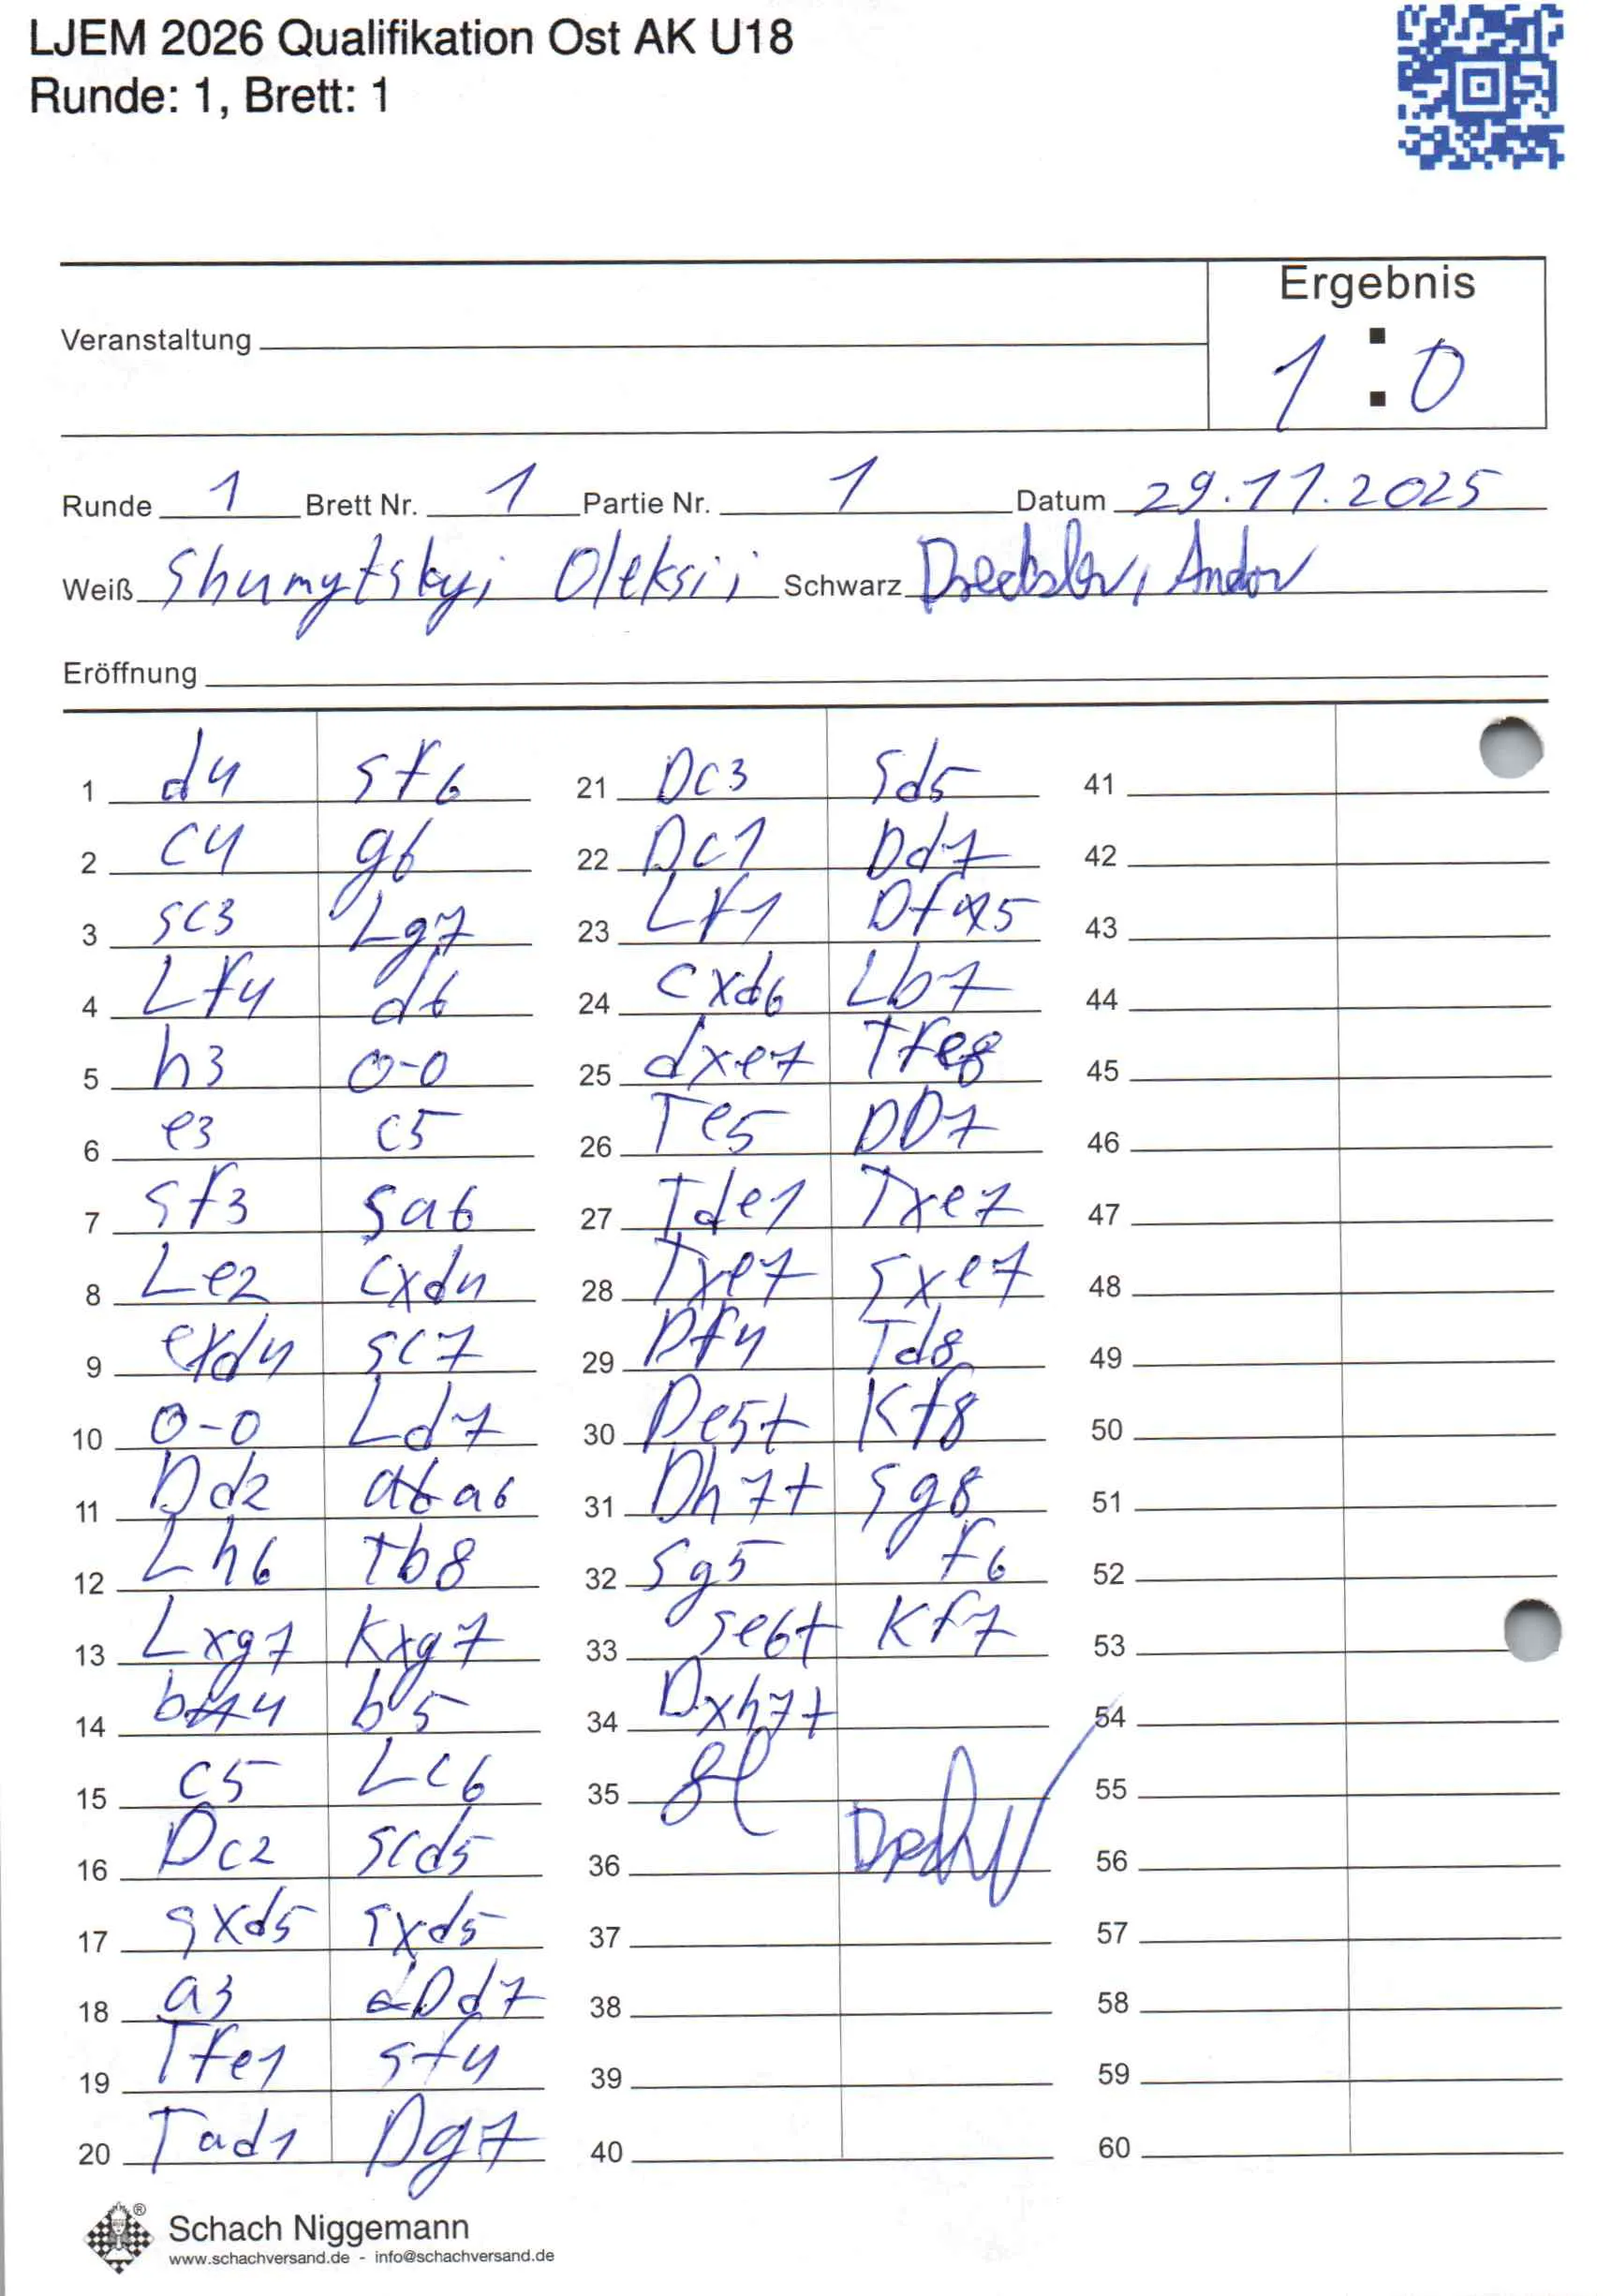 LJEM 2026 Qualifikation Ost AK U18
Runde: 1, Brett: 1
Ergebnis
Veranstaltung
1 : 0
Runde 1 Brett Nr. 1 Partie Nr. 1 Datum 29.11.2025
Weiß Shumytskyi Oleksii Schwarz Drechsler, Andor
Eröffnung
1 d4 Sf6
2 c4 g6
3 Sc3 Lg7
4 Lf4 d6
5 h3 0-0
6 e3 c5
7 Sf3 Sa6
8 Le2 cxd4
9 exd4 Sc7
10 0-0 Ld7
11 Dd2 a6
12 Lh6 Tb8
13 Lxg7 Kxg7
14 b4 b5
15 c5 Lc6
16 Dc2 Scd5
17 Sxd5 Sxd5
18 a3 Dd7
19 Tfe1 Sf4
20 Tad1 Dg7
21 Dc3 Sd5
22 Dc1 Dd7
23 Lf1 Df5
24 cxd6 Lb7
25 dxe7 Tfe8
26 Te5 DD7
27 Tde1 Txe7
28 Txe7 Sxe7
29 Df4 Td8
30 De5+ Kf8
31 Dh7+ Sg8
32 Sg5 f6
33 Se6+ Kf7
34 Dxh7+
35
36
37
38
39
40
41
42
43
44
45
46
47
48
49
50
51
52
53
54
55
56
57
58
59
60
Schach Niggemann
www.schachversand.de - info@schachversand.de